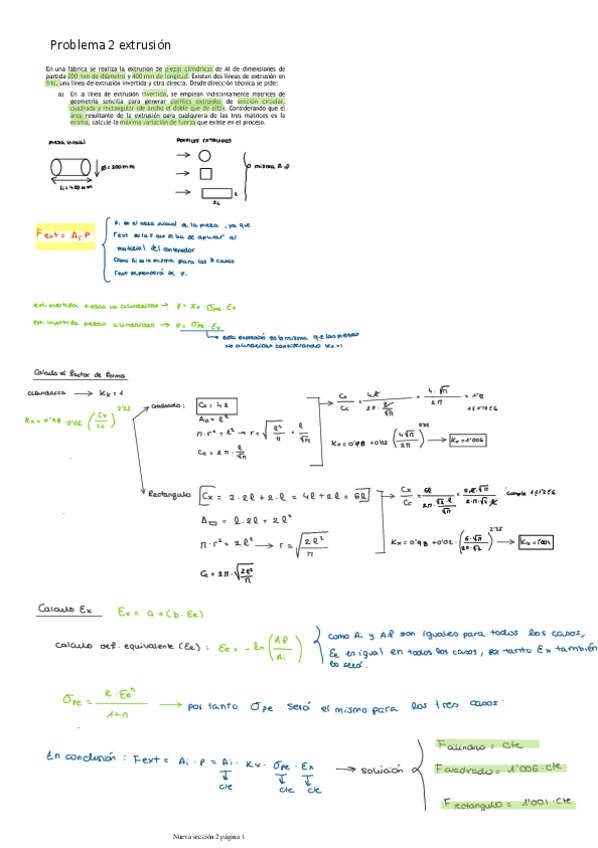 Problema 2 extrusión
En una fábrica se realiza la extrusión de piezas cilíndricas de Al de dimensiones de
partida 200 mm de diámetro y 400 mm de longitud. Existen dos líneas de extrusión en
frío, una línea de extrusión invertida y otra directa. Desde dirección técnica se pide:
a) En a línea de extrusión invertida, se emplean indistintamente matrices de
geometría sencilla para generar perfiles extruidos de sección circular,
cuadrada y rectangular (de ancho el doble que de alto). Considerando que el
área resultante de la extrusión para cualquiera de las tres matrices es la
misma, calcule la máxima variación de fuerza que existe en el proceso.
pieza inicial
Perfiles extruidos
Ø = 200mm
Li = 400mm
misma Af
2L
Fext = Ai · P
Ai es el area inicial de la pieza, ya que
Fext es la F que se ha de aplicar al
material del contenedor
Como Ai es la misma para los 3 casos
Fext dependerá de P.
ext. invertida piezas no cilindricas → P = Kx · σpe · Ex
ext. invertida piezas cilindricas → P = σpe · Ex
esta expresión es la misma que las piezas
no cilindricas considerando Kx=1
Calculo el factor de forma
cilindrica → Kx = 1
Kx = 0'98 + 0'02 (Cx/Cc)^2'25
cuadrado: Cx = 4l
A□ = l²
π·r² = l² → r = √(l²/π) = l/√π
Cc = 2π · l/√π
Cx/Cc = 4l/(2π · l/√π) = 4·√π/2π = 1'12
Kx = 0'98 + 0'02 (4√π/2π)^2'25 → Kx = 1'006
Rectangulo Cx = 2·2l + 2·l = 4l + 2l = 6l
A▭ = l·2l = 2l²
π·r² = 2l² → r = √(2l²/π)
Cc = 2π · √(2l²/π)
Kx = 0'98 + 0'02 · (6·√π/2π·√2)^2'25 → Kx = 1'001
Calculo Ex Ex = a + (b · Ee)
calculo def. equivalente (Ee): Ee = -ln (Af/Ai)
como Ai y Af son iguales para todos los casos,
Ee es igual en todos los casos, por tanto Ex también
lo será.
σpe = K · Ee^n / 1+n → por tanto σpe será el mismo para los tres casos.
En conclusión: Fext = Ai · P = Ai · Kx · σpe · Ex → solución
cte cte cte
F cilindro = cte
F cuadrado = 1'006 · cte
F rectangulo = 1'001 · cte
Nueva sección 2 página 1